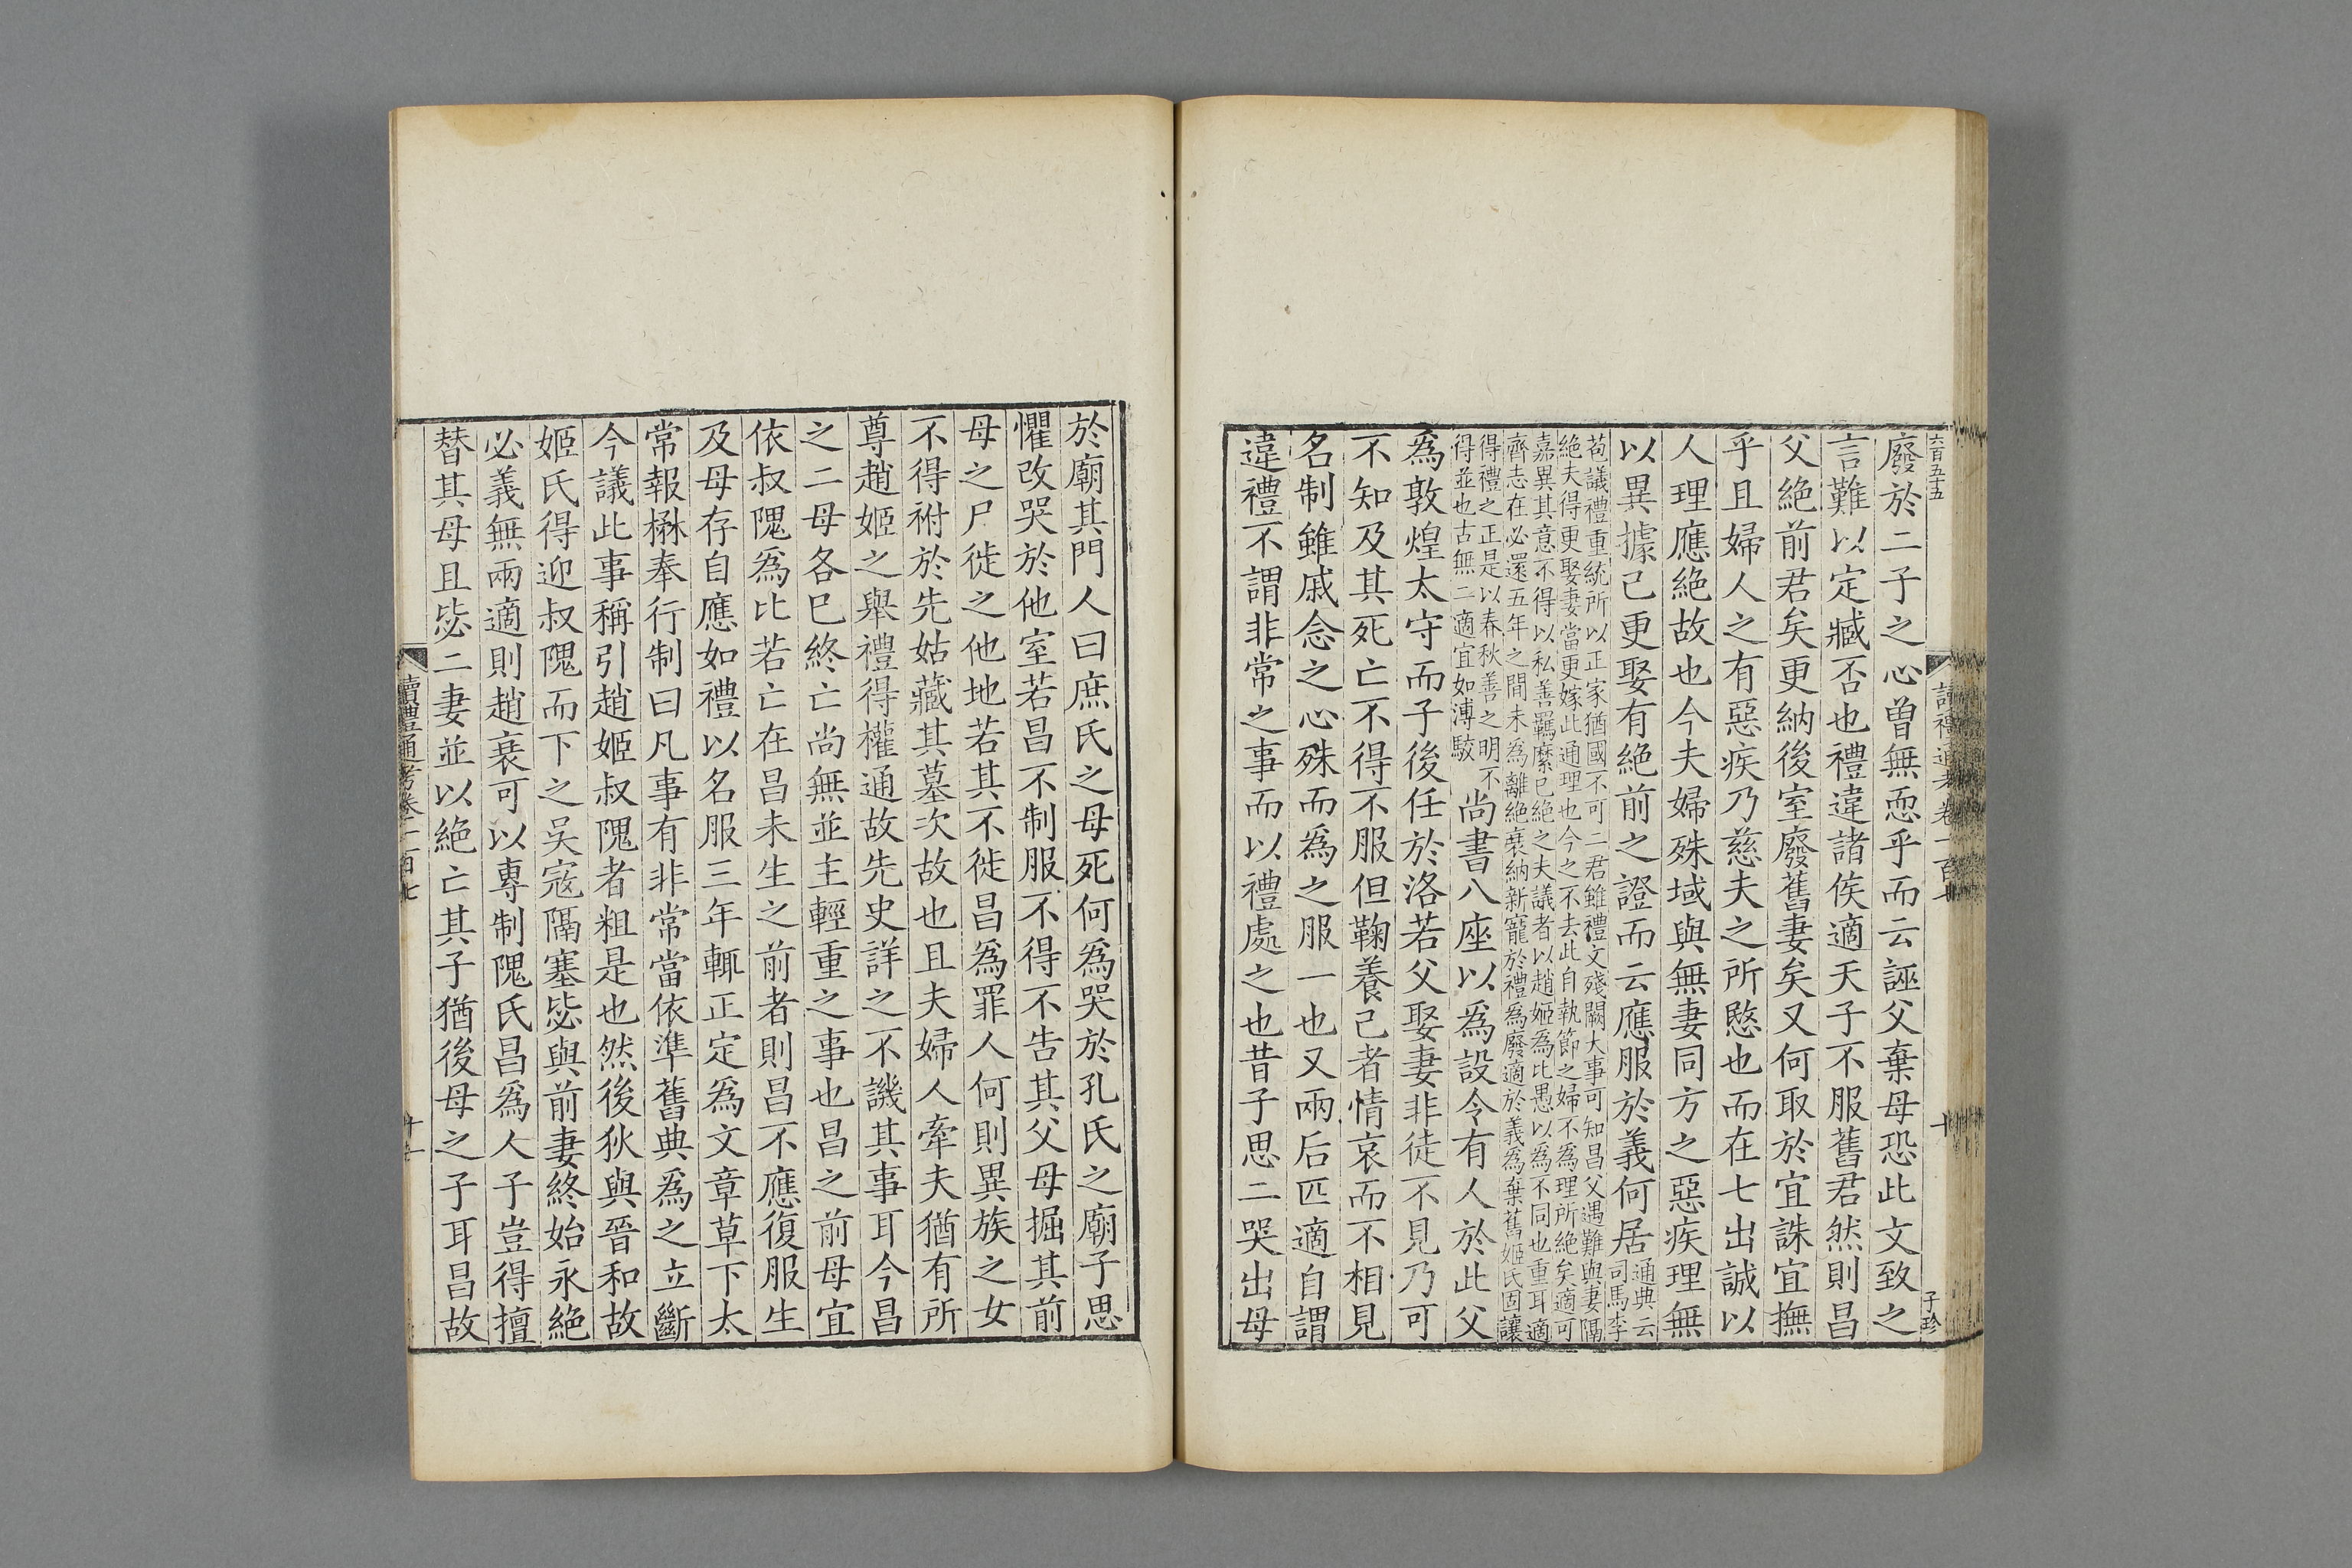 六百五十五
讀禮通考卷一百七
十
子珍
廢於二子之心曾無恧乎而云誣父棄母恐此文致之
言難以定臧否也禮違諸侯適天子不服舊君然則昌
父絶前君矣更納後室廢舊妻矣又何取於宜誅宜撫
乎且婦人之有惡疾乃慈夫之所愍也而在七出誠以
人理應絶故也今夫婦殊域與無妻同方之惡疾理無
以異據己更娶有絶前之證而云應服於義何居
通典云
司馬李
苞議禮重統所以正家猶國不可二君雖禮文殘闕大事可知昌父遇難與妻隔
絶夫得更娶妻當更嫁此通理也今之不去此自執節之婦不為理所絶矣適可
嘉異其意不得以私善羈縻已絶之夫議者以趙姬為比愚以為不同也重耳適
齊志在必還五年之間未為離絶衰納新寵於禮為廢適於義為棄舊姬氏固讓
得禮之正是以春秋善之明不
得並也古無二適宜如溥駮
尚書八座以為設令有人於此父
爲敦煌太守而子後任於洛若父娶妻非徒不見乃可
不知及其死亡不得不服但鞠養己者情哀而不相見
名制雖戚念之心殊而爲之服一也又兩后匹適自謂
違禮不謂非常之事而以禮處之也昔子思二哭出母
於廟其門人曰庶氏之母死何爲哭於孔氏之廟子思
懼改哭於他室若昌不制服不得不告其父母掘其前
母之尸徙之他地若其不徙昌爲罪人何則異族之女
不得祔於先姑藏其墓次故也且夫婦人牽夫猶有所
尊趙姬之舉禮得權通故先史詳之不譏其事耳今昌
之二母各已終亡尚無並主輕重之事也昌之前母宜
依叔隗爲比若亡在昌未生之前者則昌不應復服生
及母存自應如禮以名服三年輒正定爲文章草下太
常報楙奉行制曰凡事有非常當依準舊典爲之立斷
今議此事稱引趙姬叔隗者粗是也然後狄與晉和故
姬氏得迎叔隗而下之吳寇隔塞毖與前妻終始永絶
必義無兩適則趙衰可以專制隗氏昌爲人子豈得擅
替其母且毖二妻並以絶亡其子猶後母之子耳昌故
讀禮通考卷一百七
十一